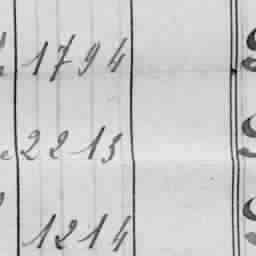 1794
2213
1214